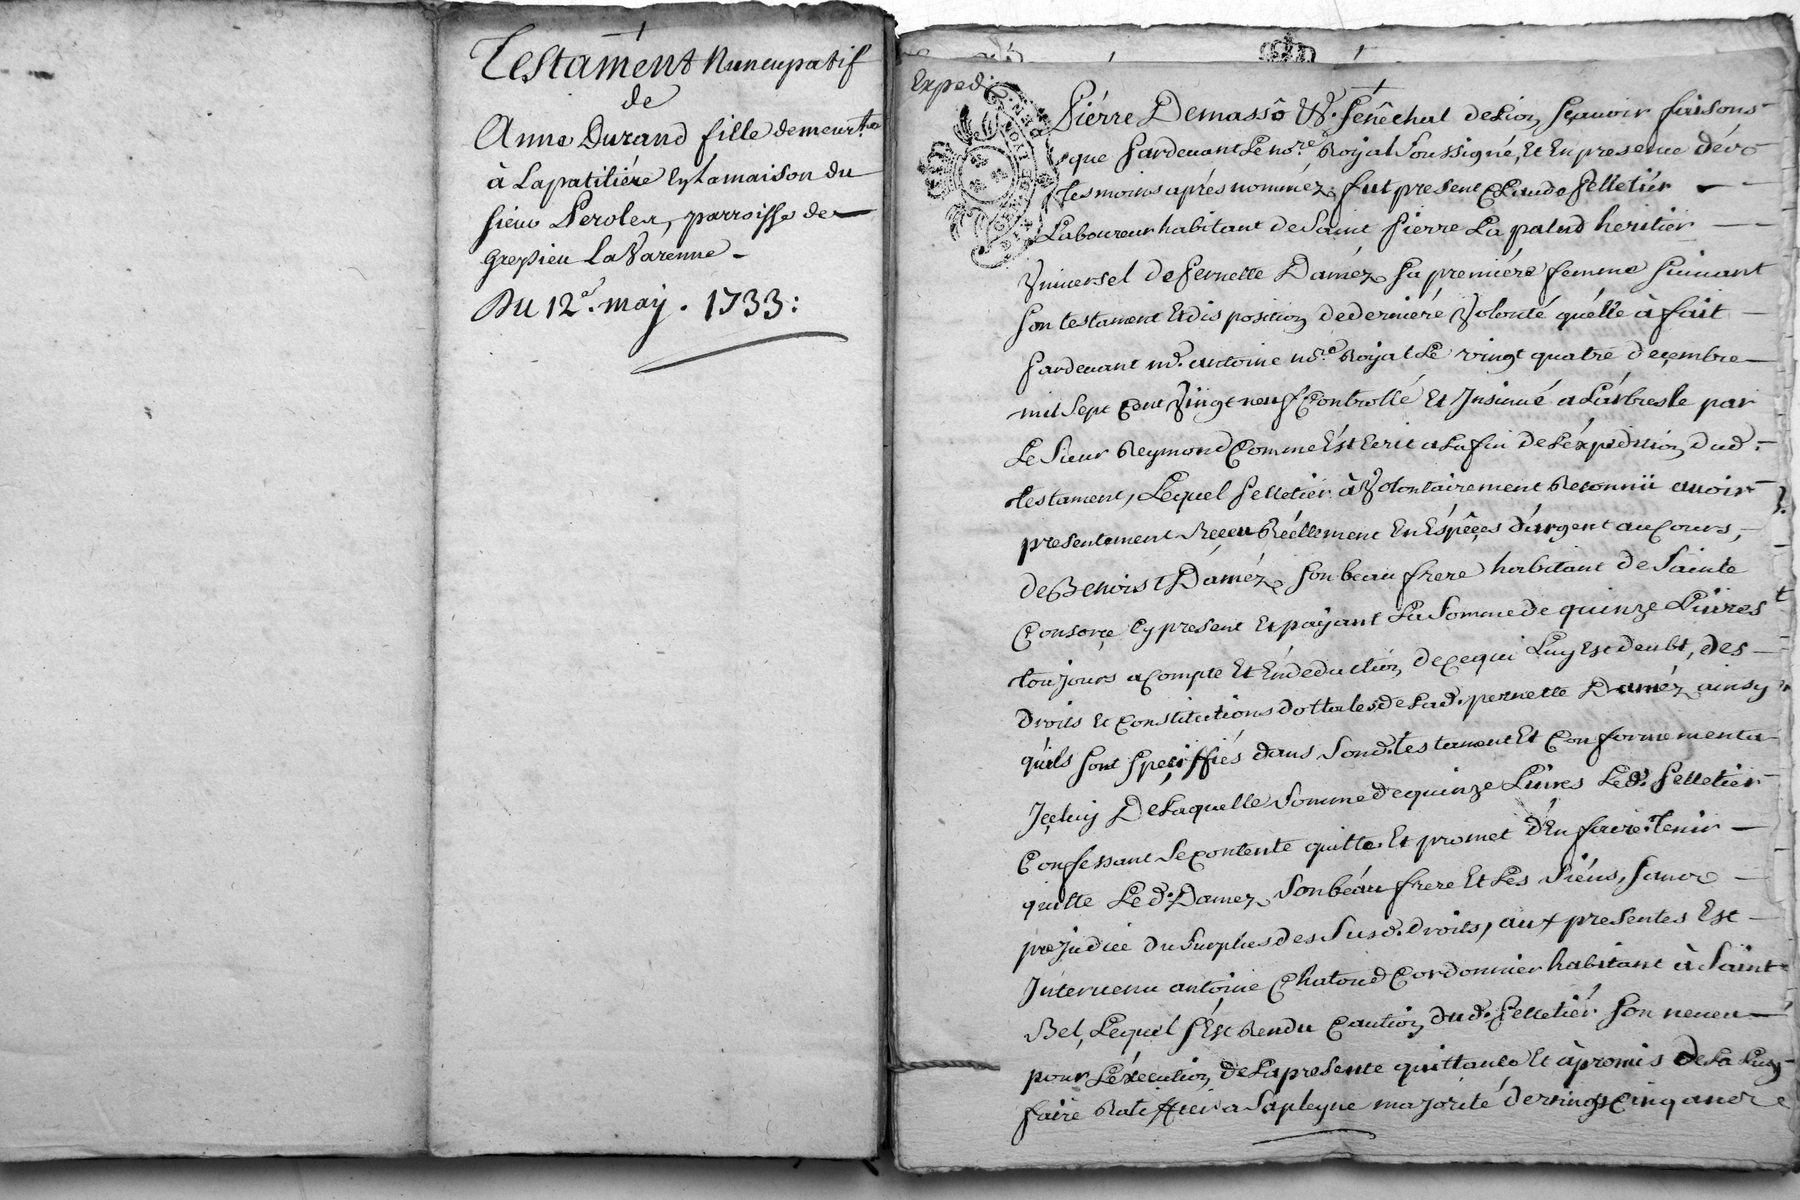 Testament Nuncupatif
de
Anne Durand fille demeurte
à Lapatiliére En Lamaison du
sieur Peroler, parroisse de
Gresieu La Varenne
Du 12e. may. 1733:
Exped
Piérre Demassô &. Senêchal deLion, sçavoir faisons
que pardevant Le nore. Royal soussigné, Et En presence
tesmoins aprés nommez fut present Claude Pelletiér
Laboureur habitant de Saint Pierre La palud heritier
Vniversel de Pernette Daméz sa premiére femme suivant
son testament Et disposition dederniére Volonté quélle à fait
pardevant me. antoine nore. Royal Le vingt quatre deçembre
mil sept Cent Vingt neuf Controllé Et Insinué a Lárbresle par
Le Sieur Reymond Comme Ést Ecrit a Lafin de Léxpedition dud.
testament, Lequel Pelletiér à Volontairement Reconnü avoir
presentement Reçeu Réellement En Éspêçes dárgent au Cours,
de Benoist Daméz son beau frere habitant de Sainte
Consorçe Cy present Et payant La Somme de quinze Livres
toujours a Compte Et En deduction de ce qui Luy Est deubt, des
droits Et Constitutions dottales de Lad. pernette Daméz ainsy
quils sont speçiffiés dans Sond. testament Et Conformement a
Içeluy De Laquelle Somme de quinze Livres Led. Pelletiér
Confessant Se Contente quitte Et promet d'En faire tenir
quitte Led. Damez Son beau frere Et Les Siéns, sans
prejudice du Surplus des Susd. droits, aux presentes Est
Intervenu antoine Chatoud Cordonnier habitant à Saint
Bel, Lequel s'Est Rendu Caution dud. Pelletiér son neveu
pour Léxecution de La presente quittance Et à promis de La Luy
faire Ratiffier a Sa pleyne majorité de vingt Cinq ans